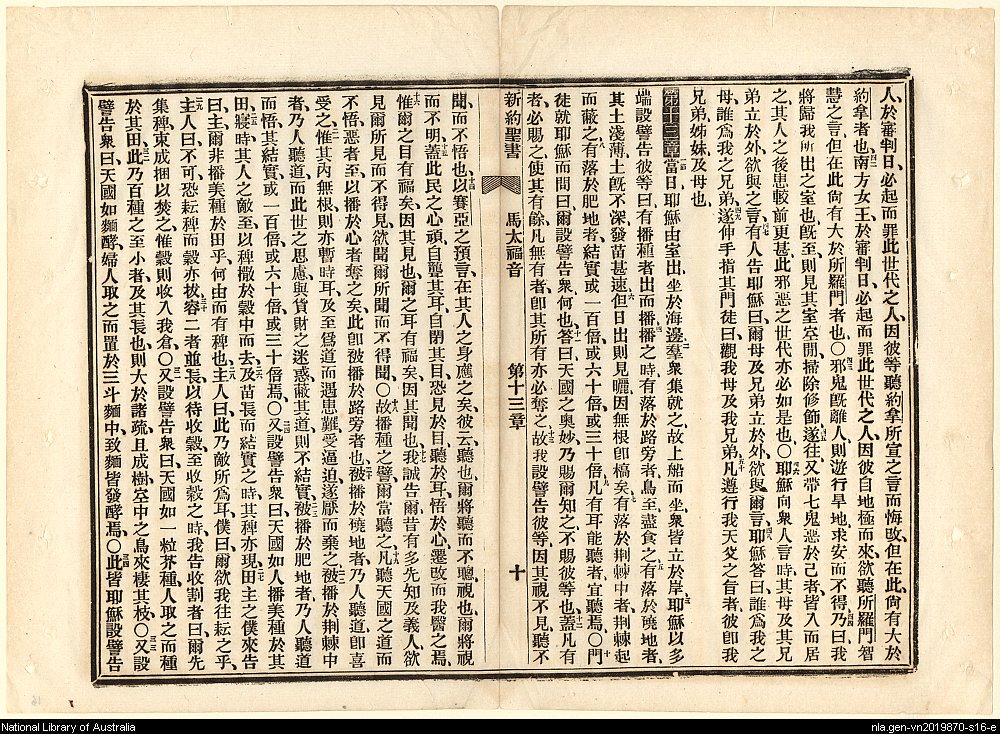 人、於審判日、必起而罪此世代之人、因彼等聽約拿所宣之言而悔改、但在此、尙有大於
約拿者也、南方女王於審判日、必起而罪此世代之人、因彼自地極而來、欲聽所羅門智
慧之言、但在此、尙有大於所羅門者也、〇邪鬼既離人、則遊行旱地、求安而不得、乃曰、我
將歸我所出之室也、旣至、則見其室空閒、掃除修飾、遂往、又帶七鬼、惡於己者、皆入而居
之、其人之後患、較前更甚、此邪惡之世代、亦必如是也、〇耶穌向衆人言時、其母及其兄
弟立於外、欲與之言、有人告耶穌曰、爾母及兄弟立於外、欲與爾言、耶穌答曰、誰爲我之
母、誰爲我之兄弟、遂伸手指其門徒曰、觀我母及我兄弟、凡遵行我天父之旨者、彼卽我
兄弟姊妹及母也、
第十三章當日、耶穌由室出、坐於海邊、羣衆集就之、故上船而坐、衆皆立於岸、耶穌以多
端設譬告彼等曰、有播種者出而播、播之時、有落於路旁者、鳥至盡食之、有落於磽地者、
其土淺薄、土旣不深、發苗甚速、但日出則見曬、因無根卽槁矣、有落於荆棘中者、荆棘起
而蔽之、有落於肥地者、結實或一百倍、或六十倍、或三十倍、凡有耳能聽者、宜聽焉、〇門
徒就耶穌而問曰、爾設譬告衆何也、答曰、天國之奧妙、乃賜爾知之、不賜彼等也、蓋凡有
者、必賜之、使其有餘、凡無有者、卽其所有亦必奪之、故我設譬告彼等、因其視不見、聽不
新約聖書 馬太福音 第十三章 十
聞、而不悟也、以賽亞之預言、在其人之身應之矣、彼云、聽也、爾將聽而不聰、視也、爾將視
而不明、蓋此民之心頑、自聾其耳、自閉其目、恐見於目、聽於耳、悟於心、遷改而我醫之焉、
惟爾之目有福矣、因其見也、爾之耳有福矣、因其聞也、我誠告爾、昔有多先知及義人、欲
見爾所見而不得見、欲聞爾所聞而不得聞、〇故播種之譬、爾當聽之、凡聽天國之道而
不悟、惡者至、以播於心者奪之矣、此卽被播於路旁者也、被播於磽地者、乃人聽道卽喜
受之、惟其內無根、則亦暫時耳、及至爲道而遇患難受逼迫、遂厭而棄之、被播於荆棘中
者、乃人聽道、而此世之思慮、與貨財之迷惑、蔽其道、則不結實、被播於肥地者、乃人聽道
而悟、其結實或一百倍、或六十倍、或三十倍焉、〇又設譬告衆曰、天國如人播美種於其
田、寢時、其人之敵至、以稗撒於穀中而去、及苗長而結實之時、其稗亦現、田主之僕來告
曰、主、爾非播美種於田乎、何由而有稗也、主人曰、此乃敵所爲耳、僕曰、爾欲我往耘之乎、
主人曰、不可、恐耘稗而穀亦拔、容二者並長、以待收穀、至收穀之時、我告收割者曰、爾先
集稗束成捆以焚之、惟穀則收入我倉、〇又設譬告衆曰、天國如一粒芥種、人取之而種
於其田、此乃百種之至小者、及其長也、則大於諸蔬、且成樹、空中之鳥來棲其枝、〇又設
譬告衆曰、天國如麵酵、婦人取之而置於三斗麵中、致麵皆發酵焉、〇此皆耶穌設譬告
National Library of Australia
nla.gen-vn2019870-s16-e